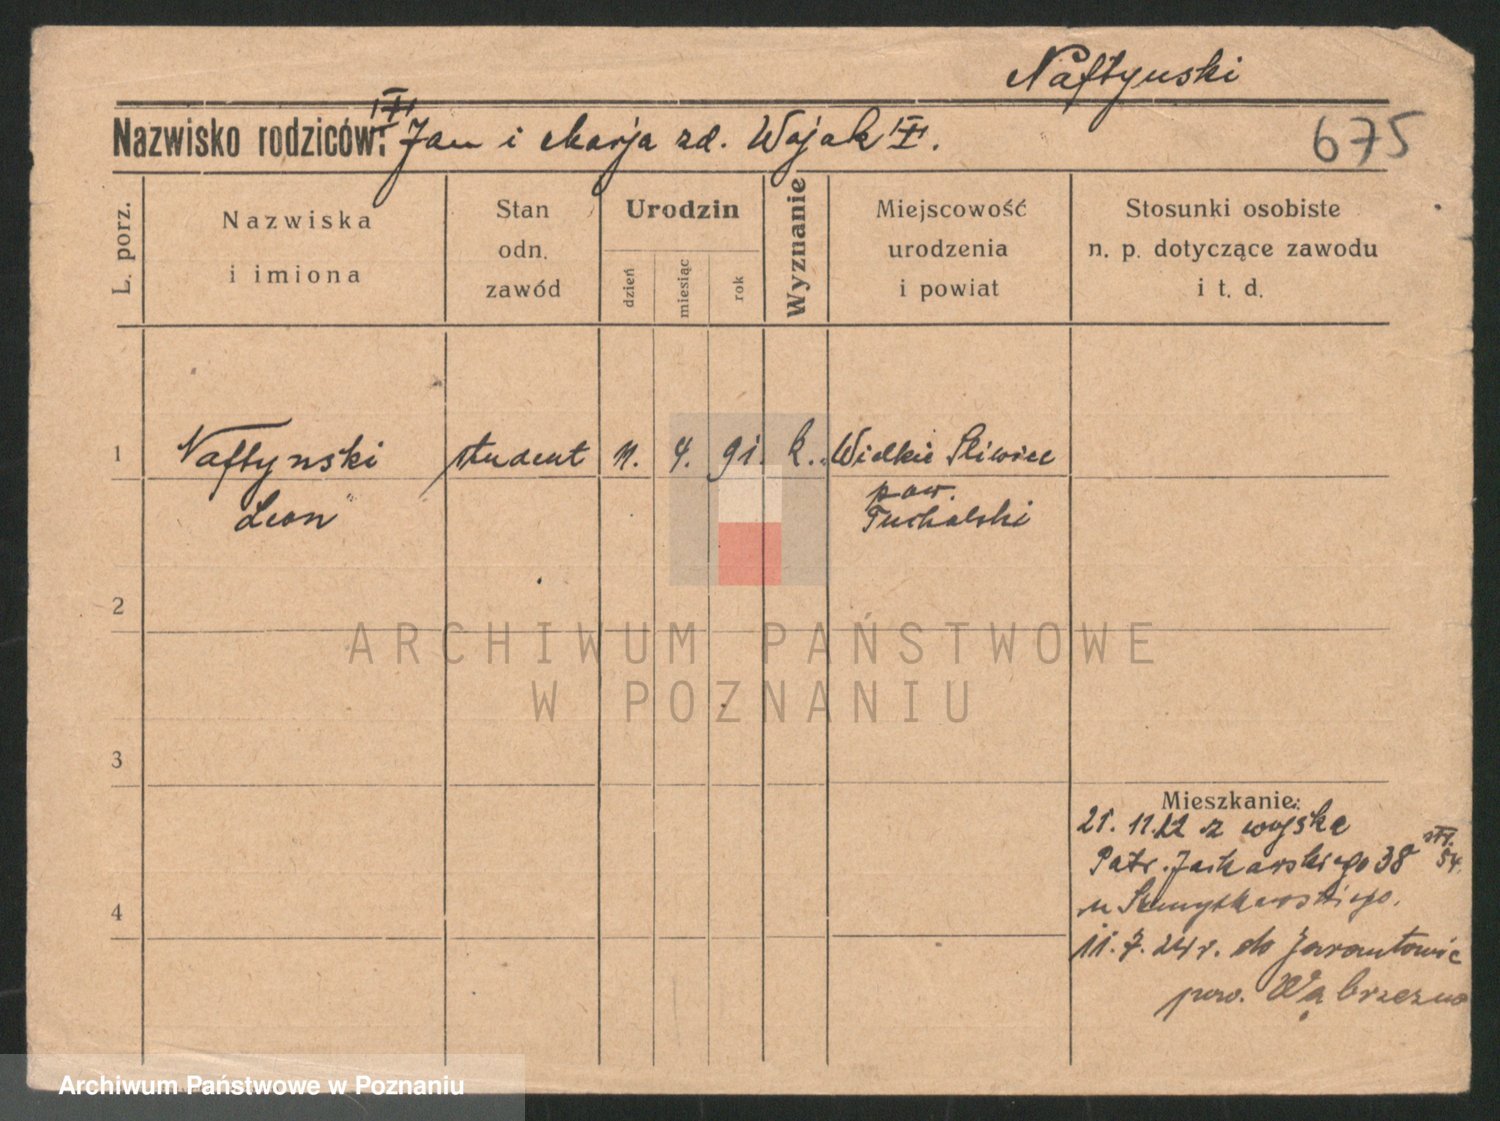 Naftynski
Nazwisko rodziców: Jan i Marja zd. Wojak
675
L. porz.
Nazwiska
i imiona
Stan
odn.
zawód
Urodzin
dzień
miesiąc
rok
Wyznanie
Miejscowość
urodzenia
i powiat
Stosunki osobiste
n. p. dotyczące zawodu
i t. d.
1 Naftynski student 11. 4. 91. k. Wielkie Śliwice
Leon
pow.
Tucholski
2
ARCHIWUM PAŃSTWOWE
W POZNANIU
3
Mieszkanie:
21. 11. 22 z wojska
Patr. Jackowskiego 38
u
4
11. 7. 24 r. do Jarantowic
pow. Wąbrzezno
Archiwum Państwowe w Poznaniu